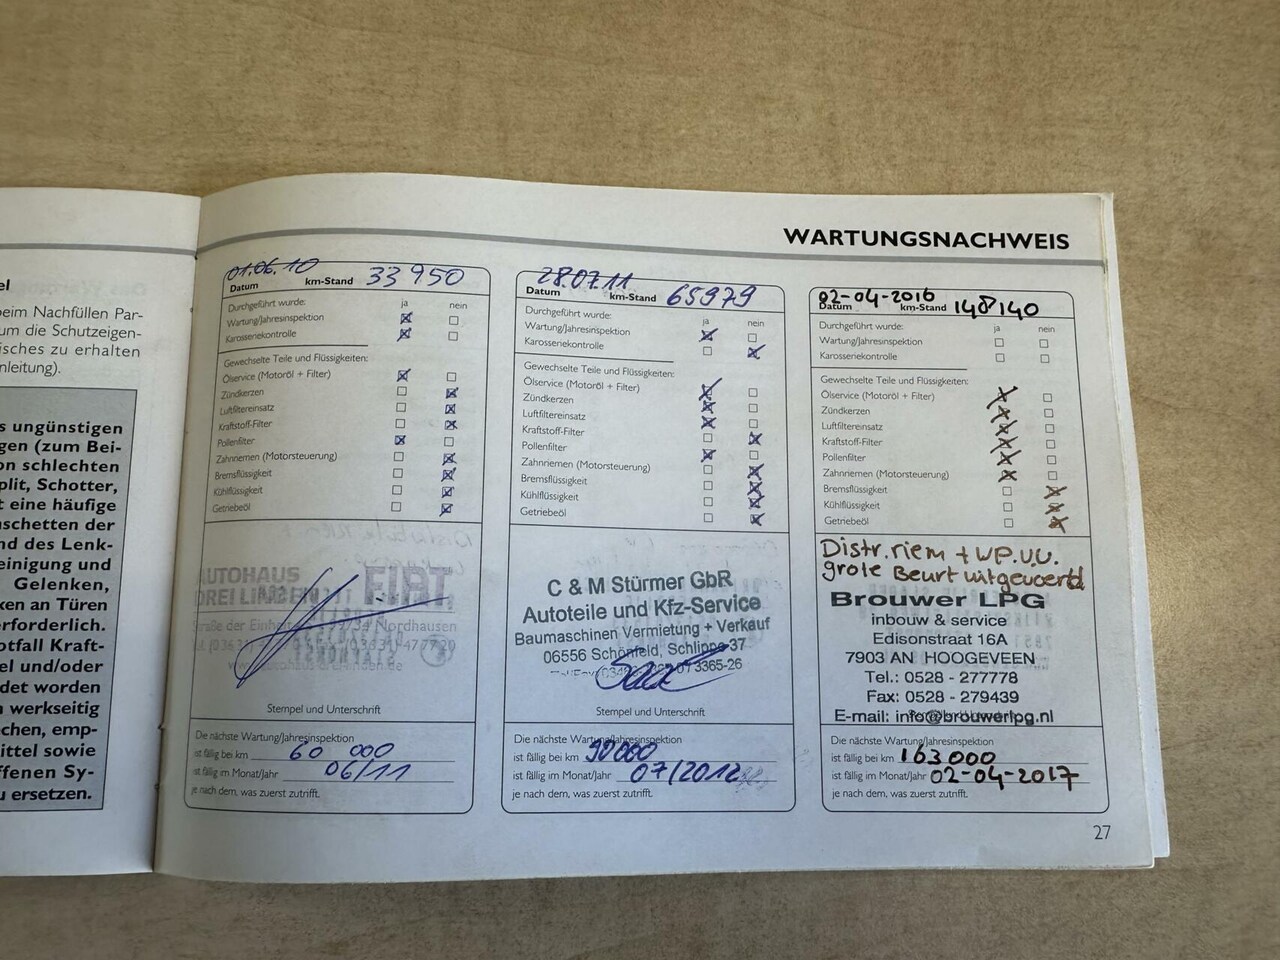 el
eim Nachfüllen Par-
um die Schutzeigen-
isches zu erhalten
nleitung).
s ungünstigen
gen (zum Bei-
on schlechten
plit, Schotter,
t eine häufige
nschetten der
nd des Lenk-
einigung und
Gelenken,
ken an Türen
erforderlich.
otfall Kraft-
el und/oder
det worden
n werkseitig
chen, emp-
ittel sowie
ffenen Sy-
u ersetzen.
WARTUNGSNACHWEIS
01.06.10 33 950
Datum km-Stand
Durchgeführt wurde: ja nein
Wartung/Jahresinspektion
Karosseriekontrolle
Gewechselte Teile und Flüssigkeiten:
Ölservice (Motoröl + Filter)
Zündkerzen
Luftfiltereinsatz
Kraftstoff-Filter
Pollenfilter
Zahnriemen (Motorsteuerung)
Bremsflüssigkeit
Kühlflüssigkeit
Getriebeöl
AUTOHAUS FIAT
DREI LINDEN
Straße der Einheit Nordhausen
Stempel und Unterschrift
Die nächste Wartung/Jahresinspektion
ist fällig bei km 60 000
ist fällig im Monat/Jahr 06/11
je nach dem, was zuerst zutrifft.
28.07.11
Datum km-Stand 65979
Durchgeführt wurde: ja nein
Wartung/Jahresinspektion
Karosseriekontrolle
Gewechselte Teile und Flüssigkeiten:
Ölservice (Motoröl + Filter)
Zündkerzen
Luftfiltereinsatz
Kraftstoff-Filter
Pollenfilter
Zahnriemen (Motorsteuerung)
Bremsflüssigkeit
Kühlflüssigkeit
Getriebeöl
C & M Stürmer GbR
Autoteile und Kfz-Service
Baumaschinen Vermietung + Verkauf
06556 Schönfeld, Schlippe 37
3365-26
Stempel und Unterschrift
Die nächste Wartung/Jahresinspektion
ist fällig bei km 90000
ist fällig im Monat/Jahr 07/2012
je nach dem, was zuerst zutrifft.
02-04-2016
Datum km-Stand 148140
Durchgeführt wurde: ja nein
Wartung/Jahresinspektion
Karosseriekontrolle
Gewechselte Teile und Flüssigkeiten:
Ölservice (Motoröl + Filter)
Zündkerzen
Luftfiltereinsatz
Kraftstoff-Filter
Pollenfilter
Zahnriemen (Motorsteuerung)
Bremsflüssigkeit
Kühlflüssigkeit
Getriebeöl
Distr.riem + WP.VV.
grote Beurt uitgevoerd
Brouwer LPG
inbouw & service
Edisonstraat 16A
7903 AN HOOGEVEEN
Tel.: 0528 - 277778
Fax: 0528 - 279439
E-mail: info@brouwerlpg.nl
Die nächste Wartung/Jahresinspektion
ist fällig bei km 163000
ist fällig im Monat/Jahr 02-04-2017
je nach dem, was zuerst zutrifft.
27